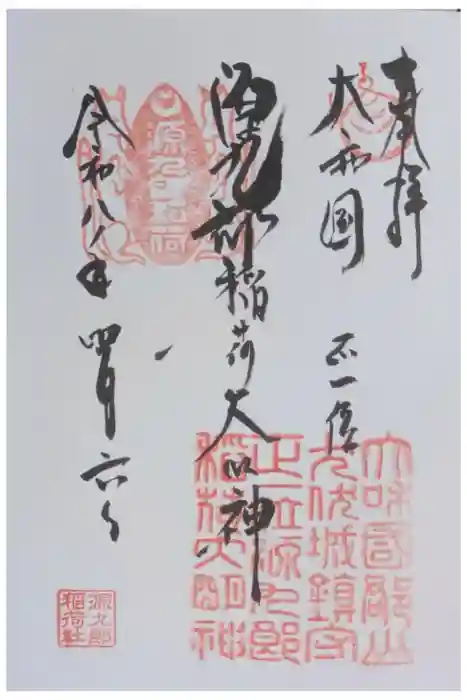 奉拝
大和国 正一位
源九郎稲荷大明神
令和八年 四月六日
源九郎稲荷
大和國郡山
九代城鎮守
正一位源九郎
稲荷大明神
源九郎
稲荷社